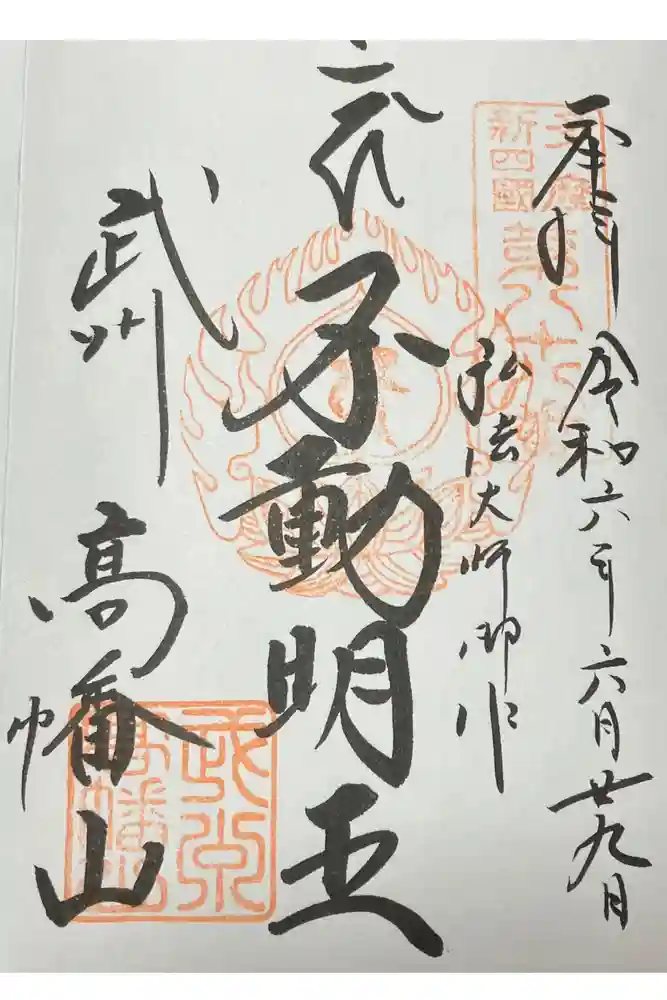 奉拝 令和六年六月廿九日
新四國
弘法大師御作
不動明王
武州 高幡山